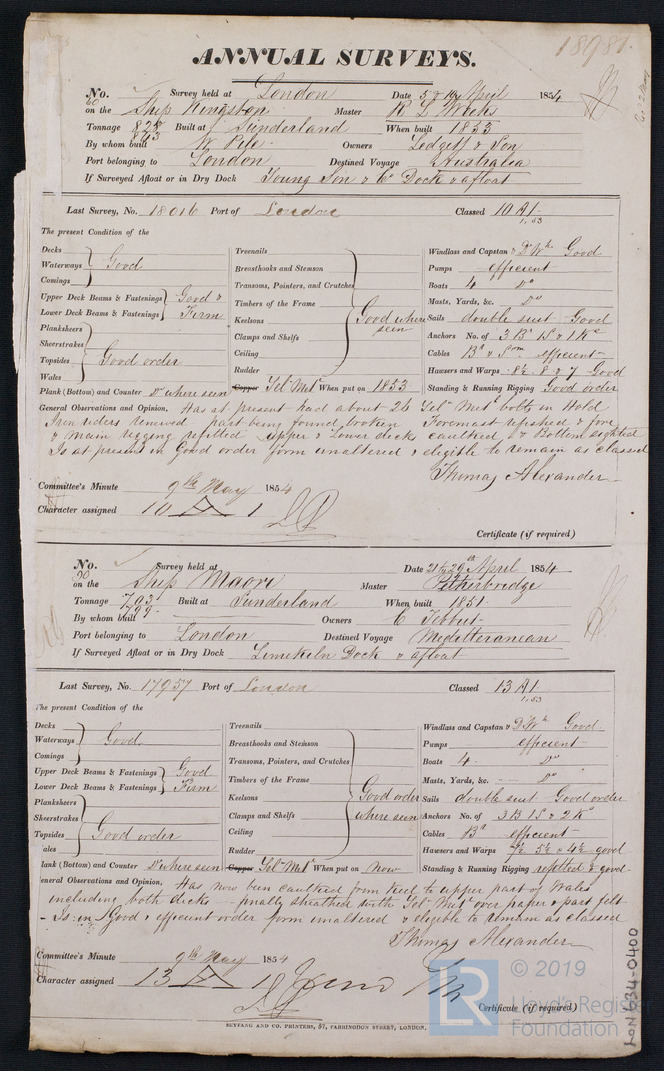 18981.
ANNUAL SURVEYS.
No. 60 Survey held at London Date 5 & 19 April 1854
on the Ship Kingston Master R L Weeks
Tonnage 828 843 Built at Sunderland When built 1853
By whom built W Pile Owners Ledgett & Son
Port belonging to London Destined Voyage Australia
If Surveyed Afloat or in Dry Dock Young Son & Co Dock & afloat
Last Survey, No. 18016 Port of London Classed 10 A1
1.53
The present Condition of the
Decks
Waterways Good
Comings
Upper Deck Beams & Fastenings Good &
Lower Deck Beams & Fastenings Firm
Planksheers
Sheerstrakes
Topsides Good order
Wales
Plank (Bottom) and Counter Do where seen
Treenails
Breasthooks and Stemson
Transoms, Pointers, and Crutches
Timbers of the Frame
Keelsons Good where seen
Clamps and Shelfs
Ceiling
Rudder
Copper Yel Metl When put on 1853
Windlass and Capstan & D Wh Good
Pumps efficient
Boats 4 Do
Masts, Yards, &c. Do
Sails double suit Good
Anchors No. of 3 Br 1 S & 1 Ke
Cables Br & Sm efficient
Hawsers and Warps 8½ 8 & 7 Good
Standing & Running Rigging Good order
General Observations and Opinion, Has at present had about 26 Yel Metl bolts in Hold
Iron riders renewed part being found broken Foremast refished & fore
& main rigging refitted upper & Lower decks caulked & Bottom sighted
Is at present in Good order form unaltered & eligible to remain as classed
Thomas Alexander
Committee's Minute 9th May 1854
Character assigned 10 A 1
Certificate (if required)
No. 90 Survey held at Date 21 & 29th April 1854
on the Ship Maori Master Petherbridge
Tonnage 703 799 Built at Sunderland When built 1851
By whom built Owners C Tebbut
Port belonging to London Destined Voyage Mediteranean
If Surveyed Afloat or in Dry Dock Limekiln Dock & afloat
Last Survey, No. 17957 Port of London Classed 13 A1
1.53
The present Condition of the
Decks
Waterways Good
Comings
Upper Deck Beams & Fastenings Good
Lower Deck Beams & Fastenings Firm
Planksheers
Sheerstrakes
Topsides Good order
ales
lank (Bottom) and Counter Do where seen
Treenails
Breasthooks and Stemson
Transoms, Pointers, and Crutches
Timbers of the Frame
Keelsons Good order
Clamps and Shelfs where seen
Ceiling
Rudder
Copper Yel Metl When put on Now
Windlass and Capstan & D Wh Good
Pumps efficient
Boats 4 Do
Masts, Yards, &c. Do
Sails double suit Good order
Anchors No. of 3 B 1 S & 2 Ks
Cables Br efficient
Hawsers and Warps 7½ 5½ & 4½ good
Standing & Running Rigging refitted & good
eneral Observations and Opinion, Has now been caulked from keel to upper part of Wales
including both decks finally sheathed with Yel Metl over paper & part felt
Is in Good & efficient order form unaltered & eligible to remain as classed
Thomas Alexander
Committee's Minute 9th May 1854
Character assigned 13 A 1
Certificate (if required)
SEYFANG AND CO. PRINTERS, 57, FARRINGDON STREET, LONDON.
LR © 2019
Lloyd's Register
Foundation
LON634-0400